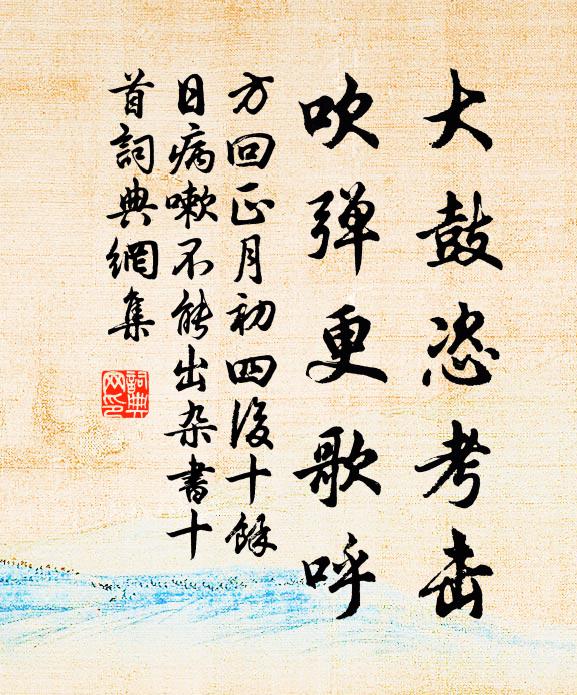 大鼓恣考击
吹弹更歌呼
方回正月初四后十馀
日病嗽不能出杂书十
首词典网集
词典
网印